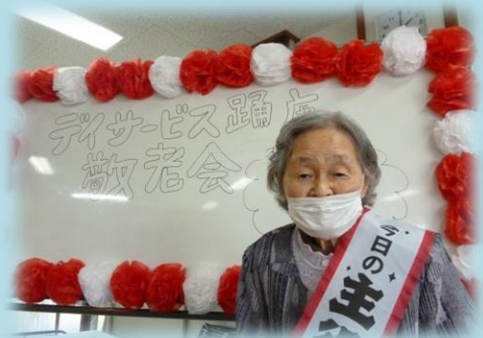 デイサービス踊
敬老会
今日の主